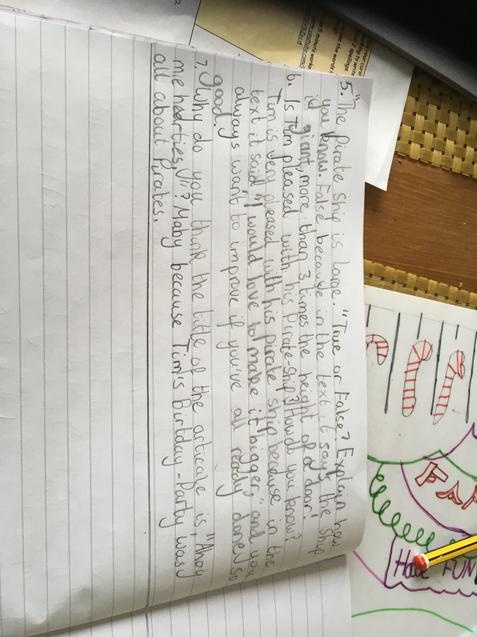 5. "The Pirate Ship is Large." True or False? Explain how
you know. False because in the text it says the ship
is giant, more than 3 times the height of a door!
6. Is Tim pleased with his pirate-ship? How do you know?
Tim is very pleased with his pirate ship because in the
text it said "I would love to make it bigger," and you
always want to improve if you've all ready done so
good.
7. Why do you think the title of the articale is, "Ahoy
me hearties,"? Maby because Tim's Birtday-Party was
all about Pirates.
Have FUN